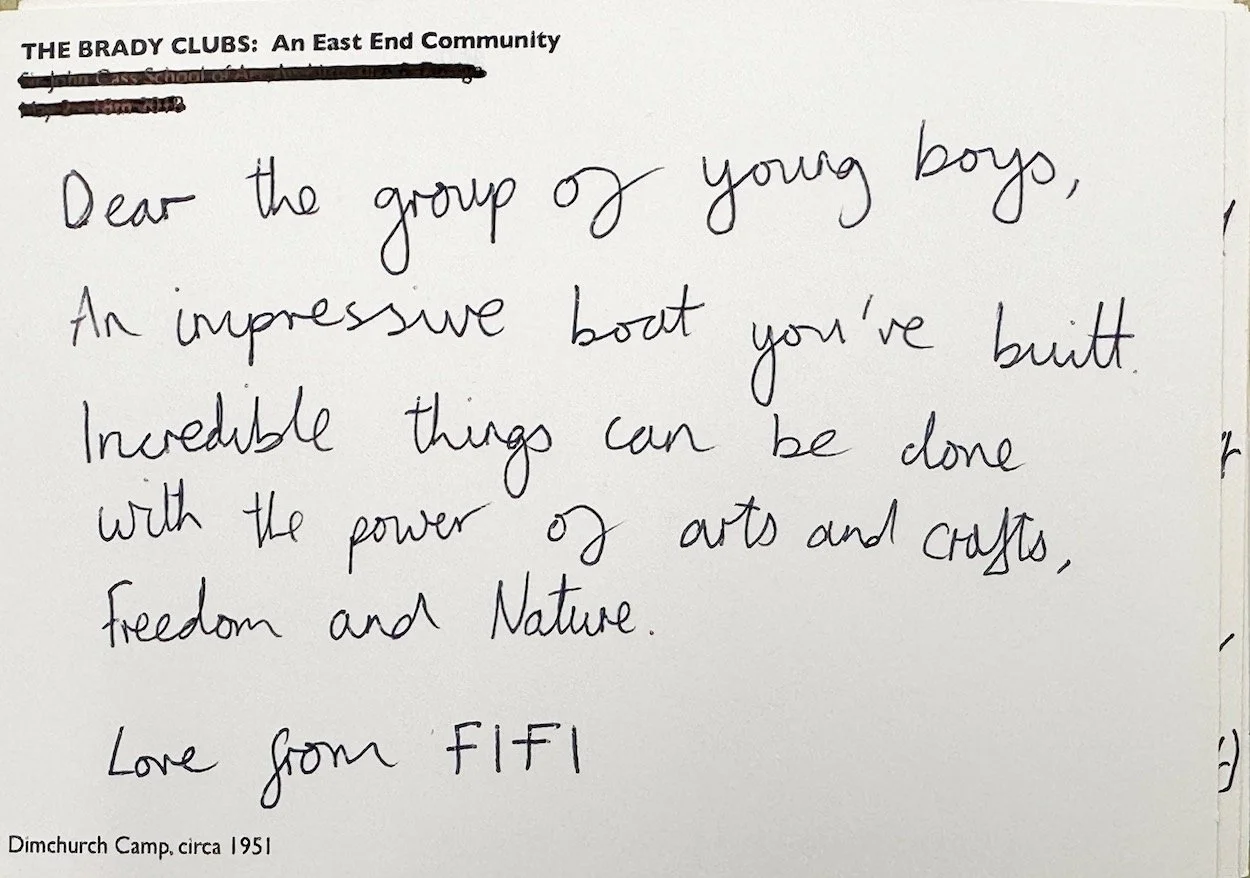 THE BRADY CLUBS: An East End Community
Sir John Cass School of
Dear the group of young boys,
An impressive boat you've built.
Incredible things can be done
with the power of arts and crafts,
Freedom and Nature.
Love from FIFI
Dimchurch Camp, circa 1951